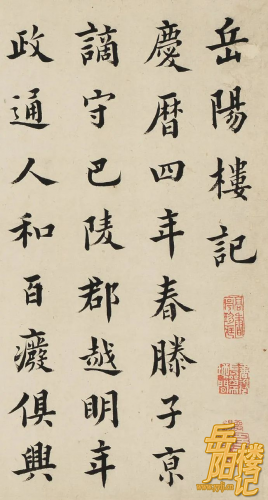 岳陽樓記
慶曆四年春滕子京
謫守巴陵郡越明年
政通人和百癈俱興
岳阳楼记